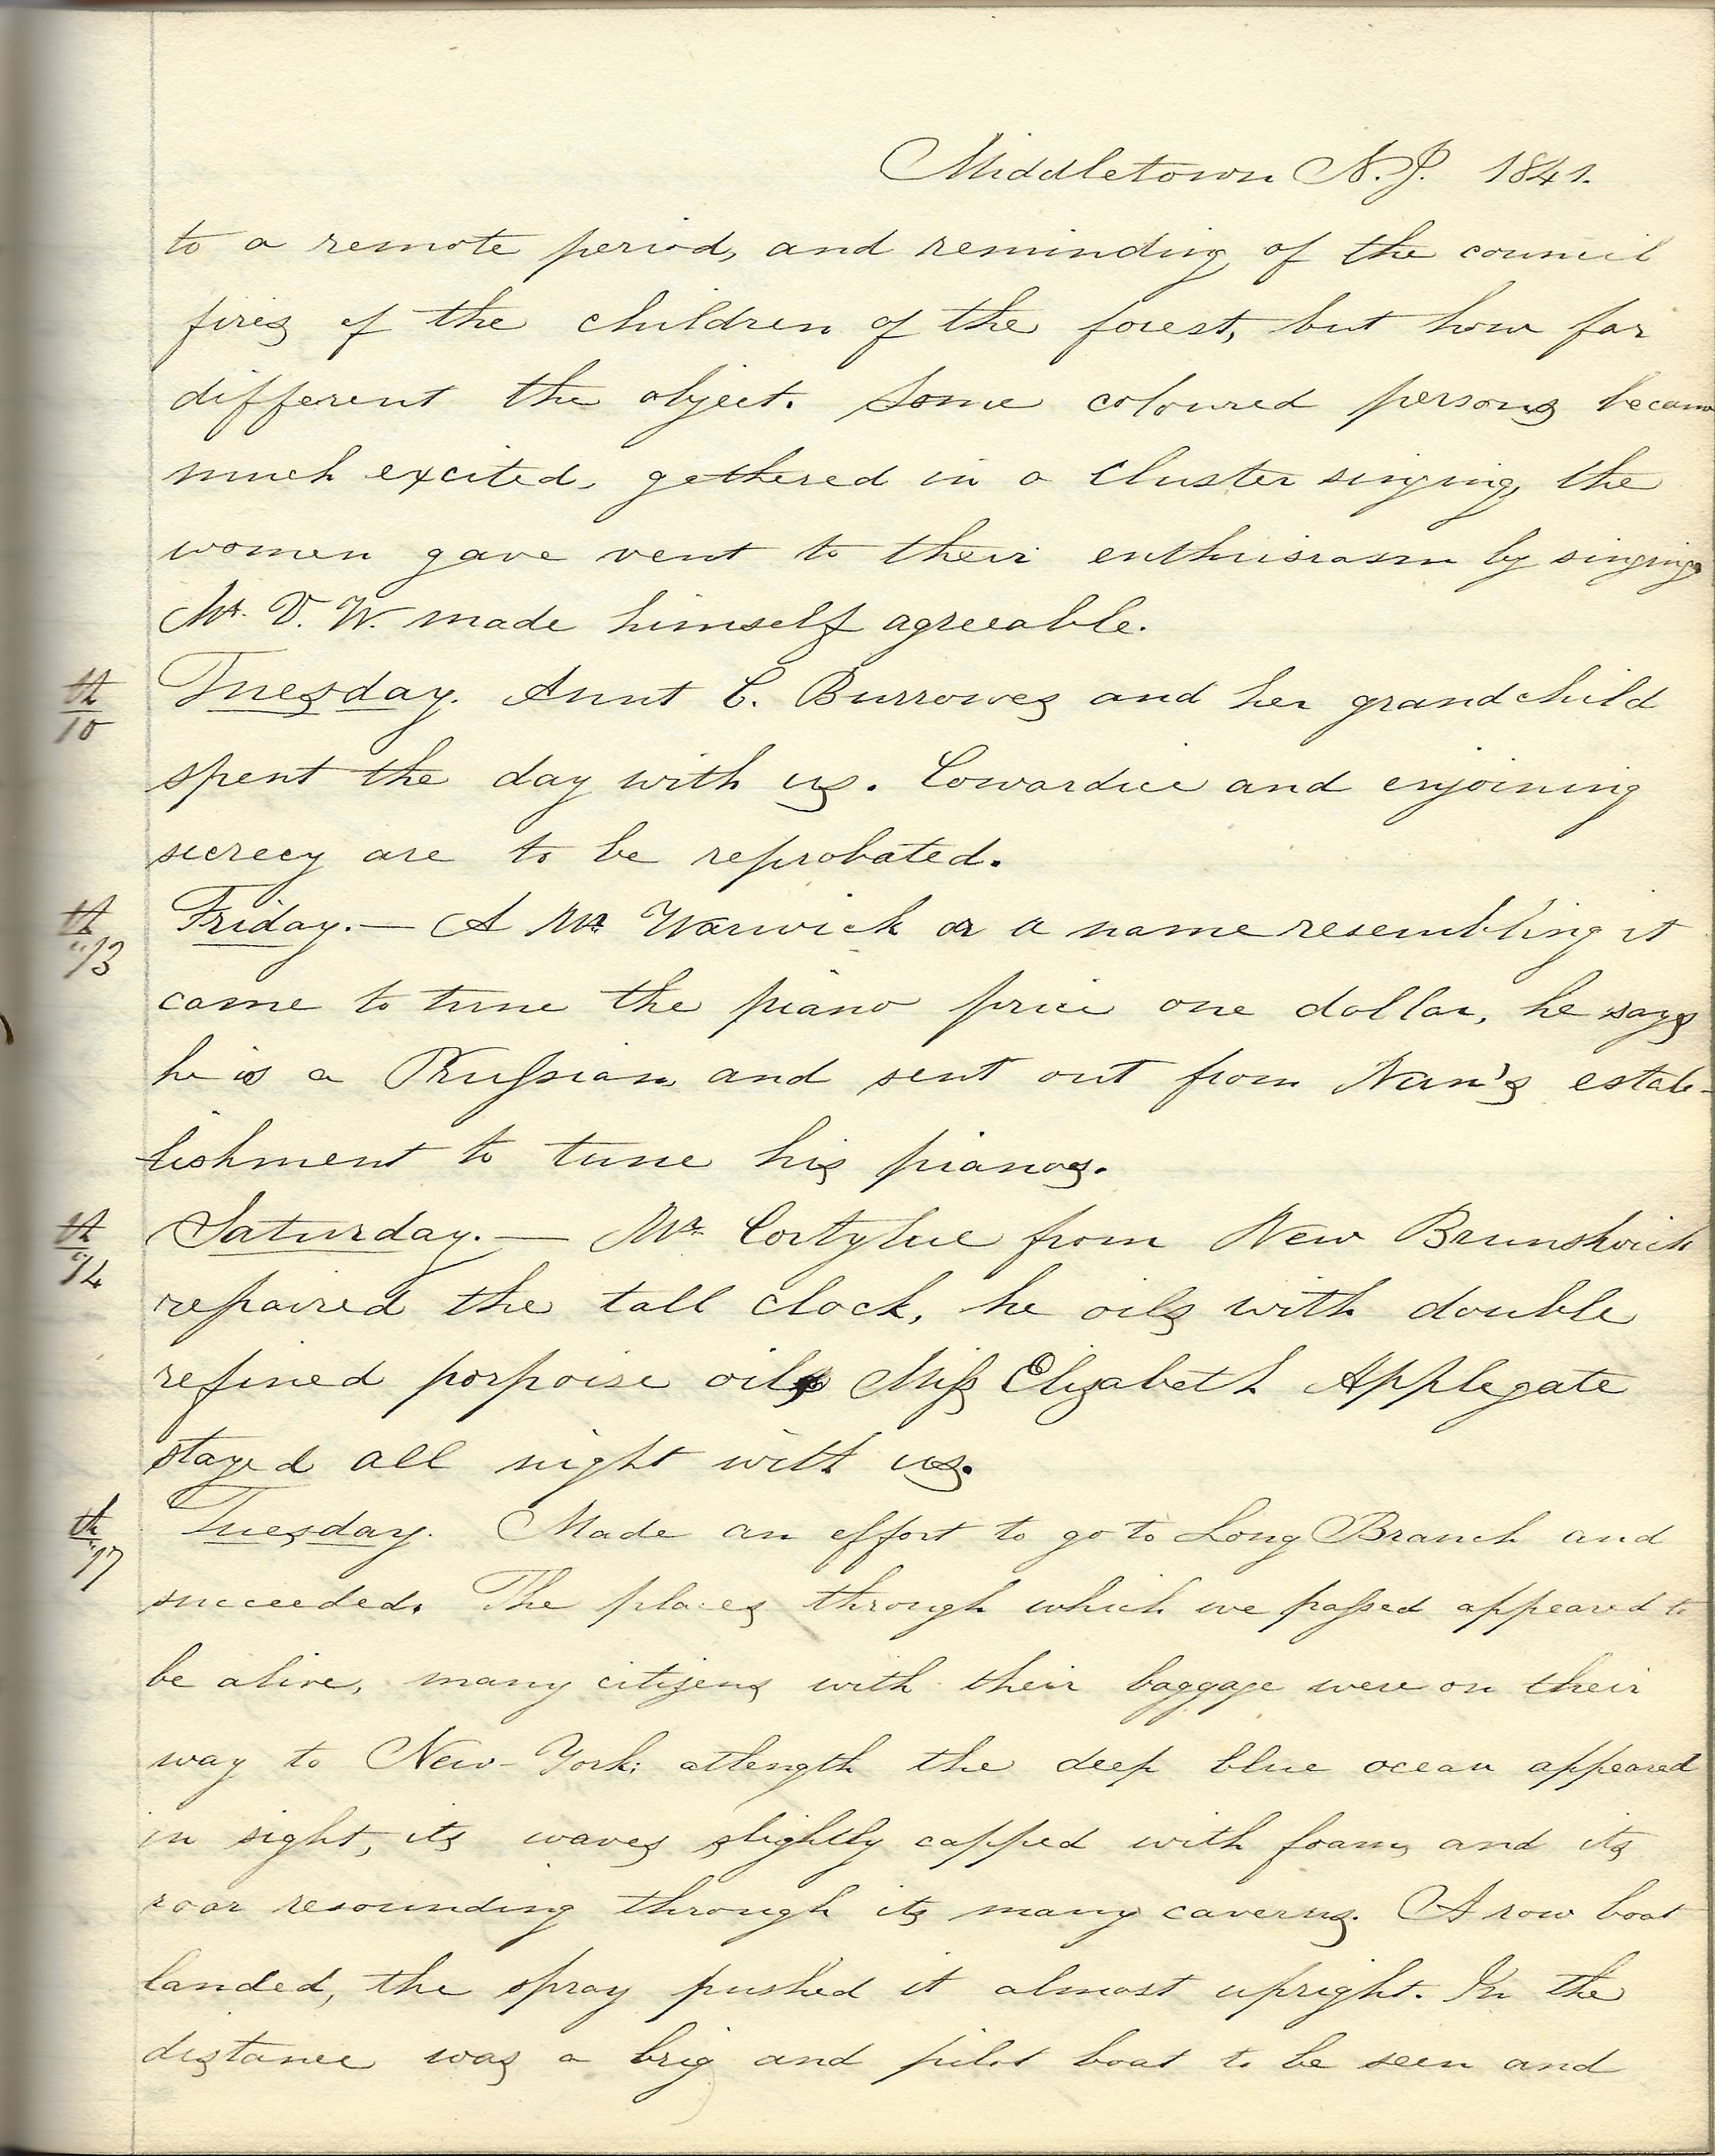 Middletown N.J. 1841.
to a remote period, and reminding of the council
fires of the children of the forest, but how far
different the object. Some coloured persons became
much excited, gethered in a cluster singing, the
women gave vent to their enthusiasm by singing
Mr. V. W. made himself agreeable.
th
10
Tuesday. Aunt C. Burrowes and her grandchild
spent the day with us. Cowardice and enjoining
secrecy are to be reprobated.
th
"13
Friday.— A Mr Warwick or a name resembling it
came to tune the piano price one dollar, he says
he is a Prussian and sent out from Nun's estab-
lishment to tune his pianos.
th
"14
Saturday.— Mr Cortylue from New Brunskwick
repaired the tall clock, he oils with double
refined porpoise oil Miss Elizabeth Applegate
stayed all night with us.
th
"17
Tuesday. Made an effort to go to Long Branch and
succeeded. The places through which we passed appeared to
be alive, many citizens with their baggage were on their
way to New-York; atlength the deep blue ocean appeared
in sight, its waves slightly capped with foam, and its
roar resounding through its many caverns. A row boat
landed, the spray pushed it almost upright. In the
distance was a brig and pilot boat to be seen and